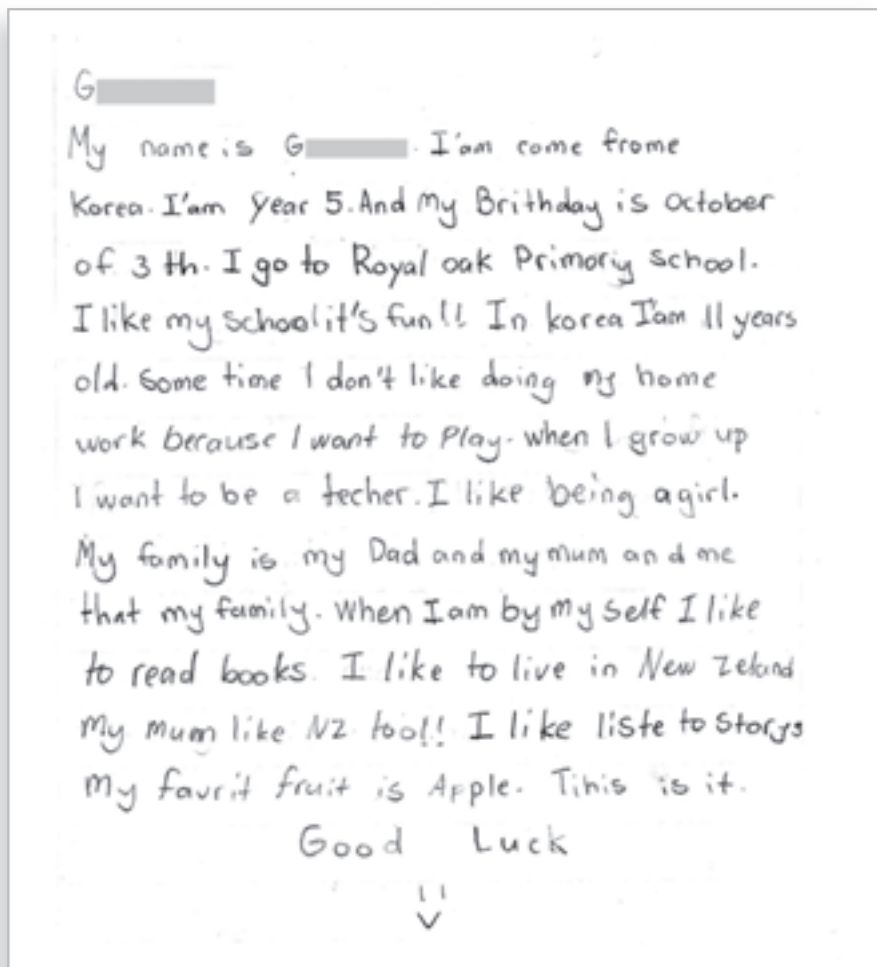 G
My name is G . I'am come frome
Korea. I'am Year 5. And my Brithday is October
of 3 th. I go to Royal oak Primory school.
I like my school it's fun!! In korea I'am 11 years
old. Some time I don't like doing my home
work berause I want to Play. when I grow up
I want to be a techer. I like being a girl.
My family is my Dad and my mum and me
that my family. When I am by my self I like
to read books. I like to live in New Zeland
My mum like NZ too!! I like liste to Storys
My favrit fruit is Apple. Tihis is it.
Good Luck